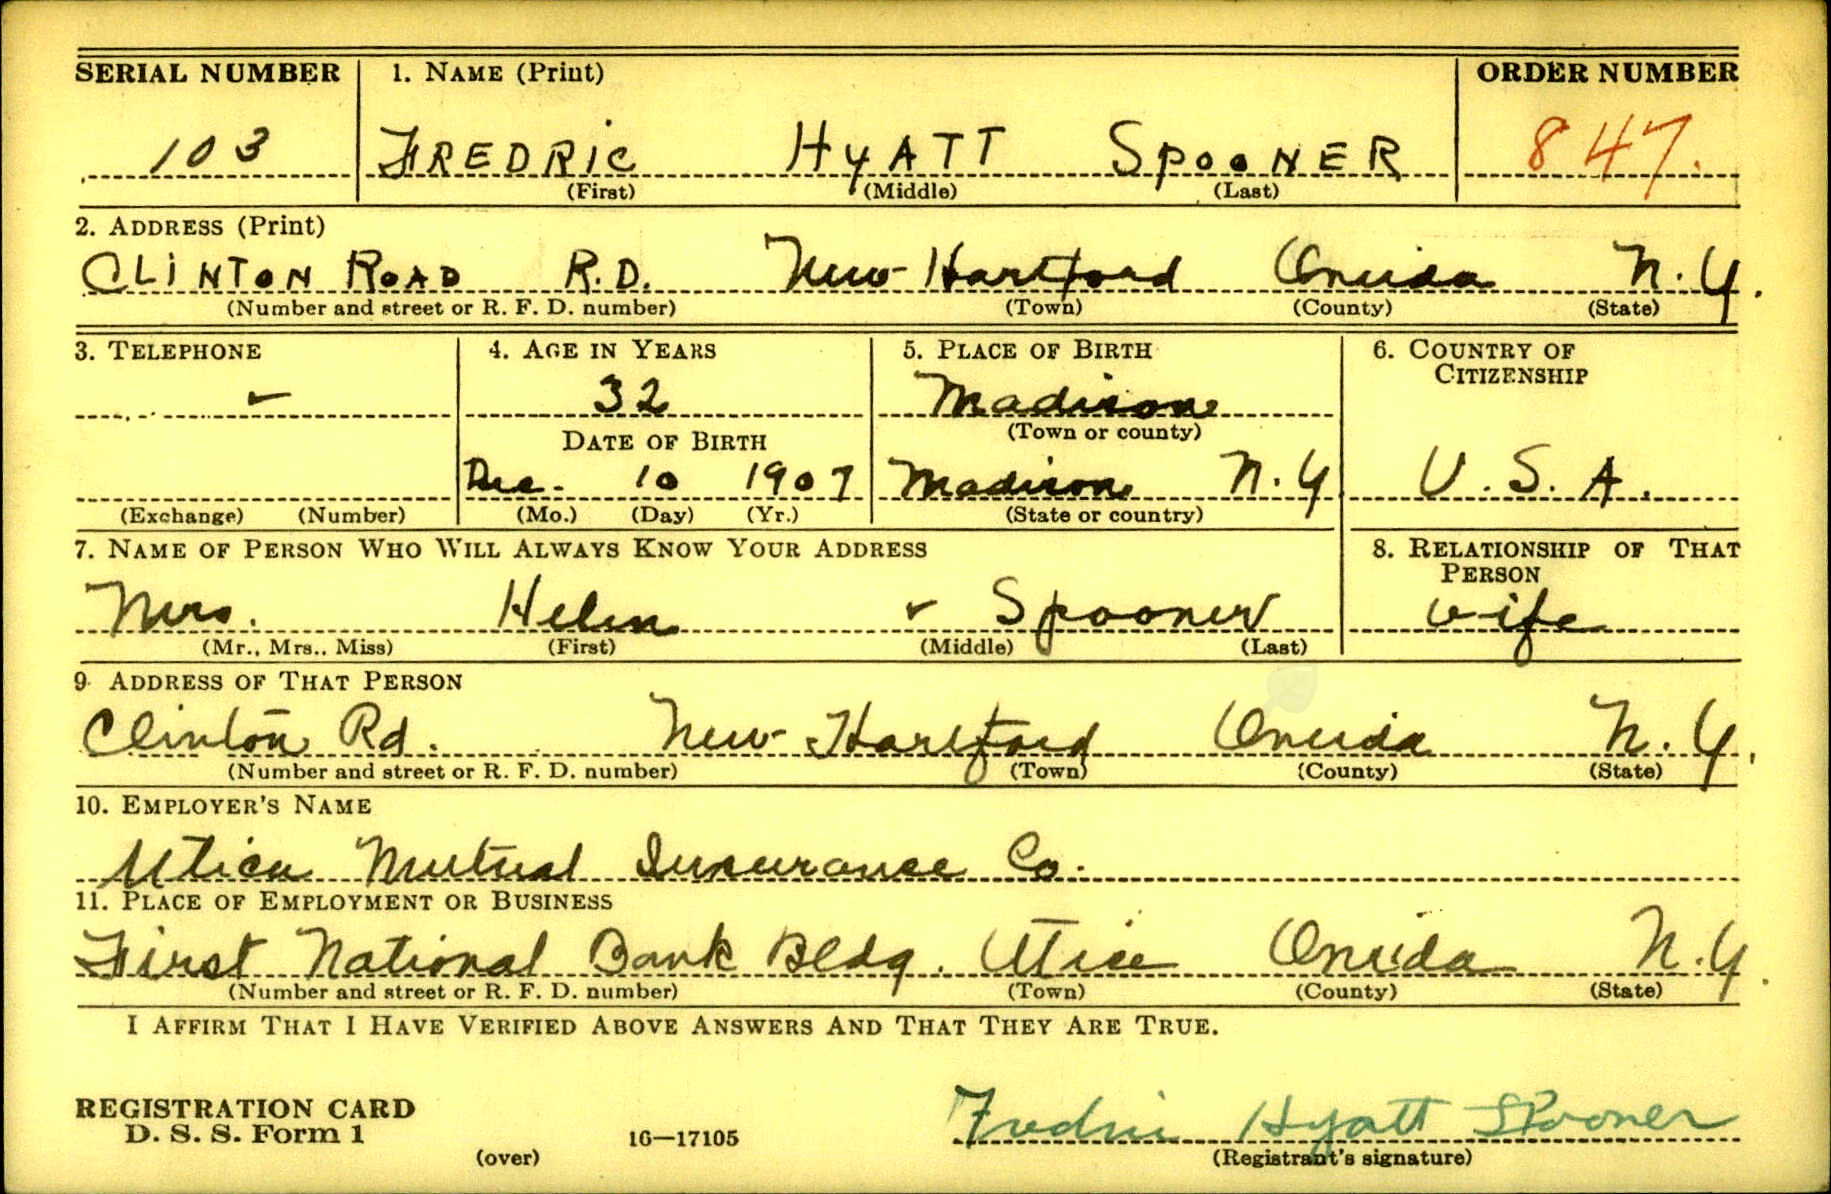 SERIAL NUMBER 1. NAME (Print) ORDER NUMBER
103 FREDRIC HYATT SPOONER 847.
(First) (Middle) (Last)
2. ADDRESS (Print)
CLINTON ROAD R.D. New Hartford Oneida N.Y.
(Number and street or R. F. D. number) (Town) (County) (State)
3. TELEPHONE 4. AGE IN YEARS 5. PLACE OF BIRTH 6. COUNTRY OF
CITIZENSHIP
- 32 Madison
(Town or county)
DATE OF BIRTH
Dec. 10 1907 Madison N.Y. U.S.A.
(Exchange) (Number) (Mo.) (Day) (Yr.) (State or country)
7. NAME OF PERSON WHO WILL ALWAYS KNOW YOUR ADDRESS 8. RELATIONSHIP OF THAT
PERSON
Mrs. Helen - Spooner wife
(Mr., Mrs., Miss) (First) (Middle) (Last)
9. ADDRESS OF THAT PERSON
Clinton Rd. New Hartford Oneida N.Y.
(Number and street or R. F. D. number) (Town) (County) (State)
10. EMPLOYER'S NAME
Utica Mutual Insurance Co.
11. PLACE OF EMPLOYMENT OR BUSINESS
First National Bank Bldg. Utica Oneida N.Y.
(Number and street or R. F. D. number) (Town) (County) (State)
I AFFIRM THAT I HAVE VERIFIED ABOVE ANSWERS AND THAT THEY ARE TRUE.
REGISTRATION CARD
D. S. S. Form 1 16—17105 Fredric Hyatt Spooner
(over) (Registrant's signature)